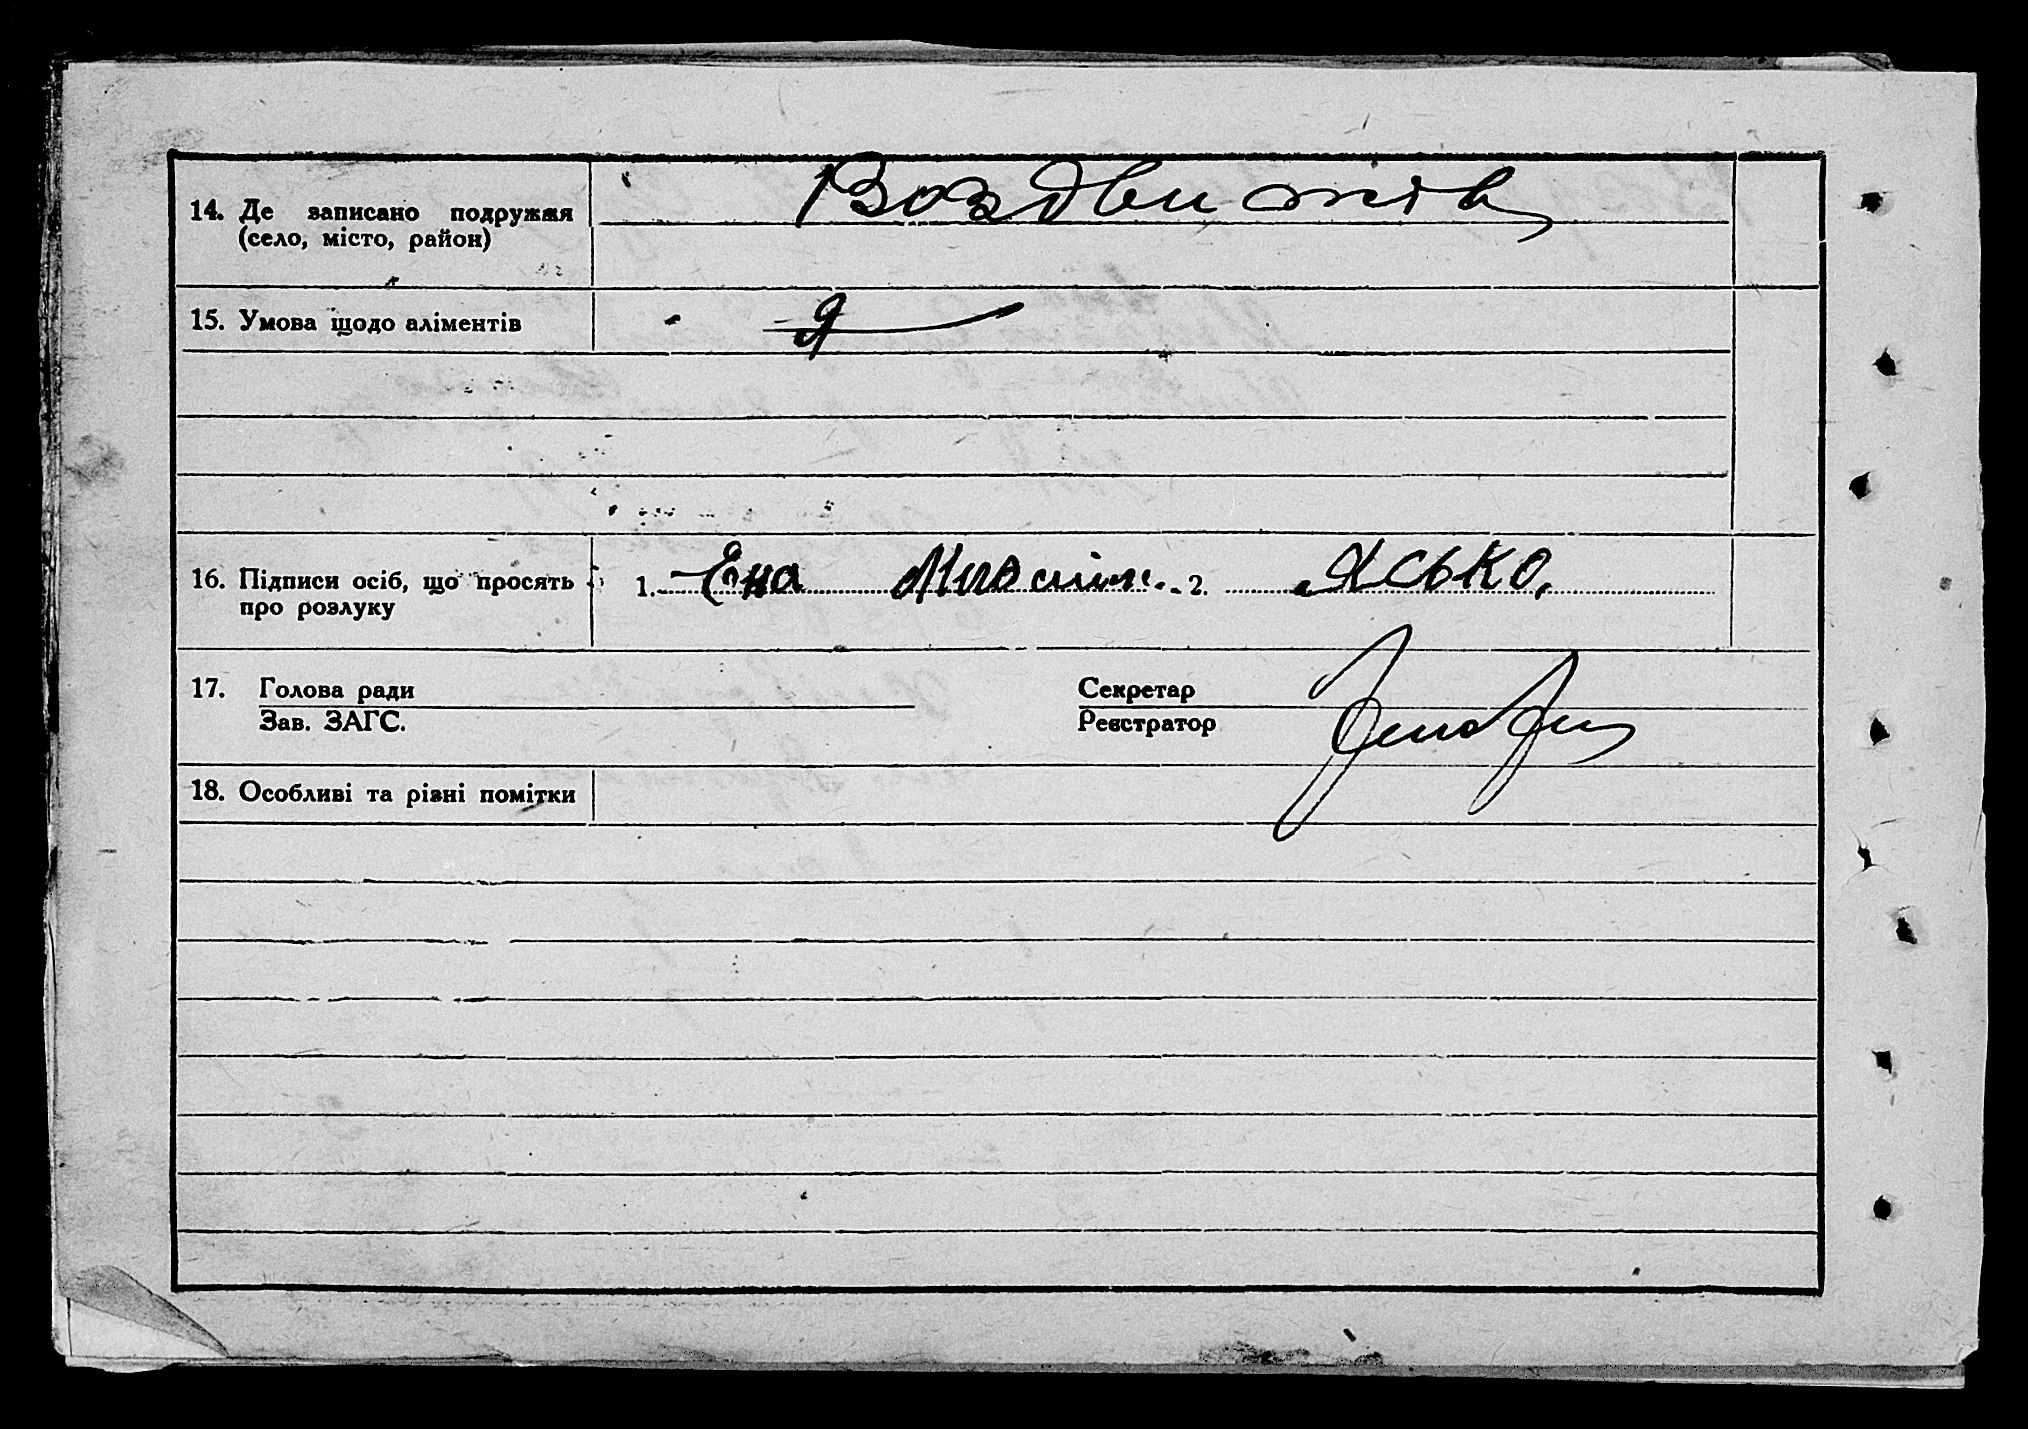 14. Де записано подружжя Воздвижівц
(село, місто, район)
15. Умова щодо аліментів
16. Підписи осіб, що просять 1. Ена 2. Ясько.
про розлуку
17. Голова ради Секретар
Зав. ЗАГС. Реєстратор
18. Особливі та різні помітки